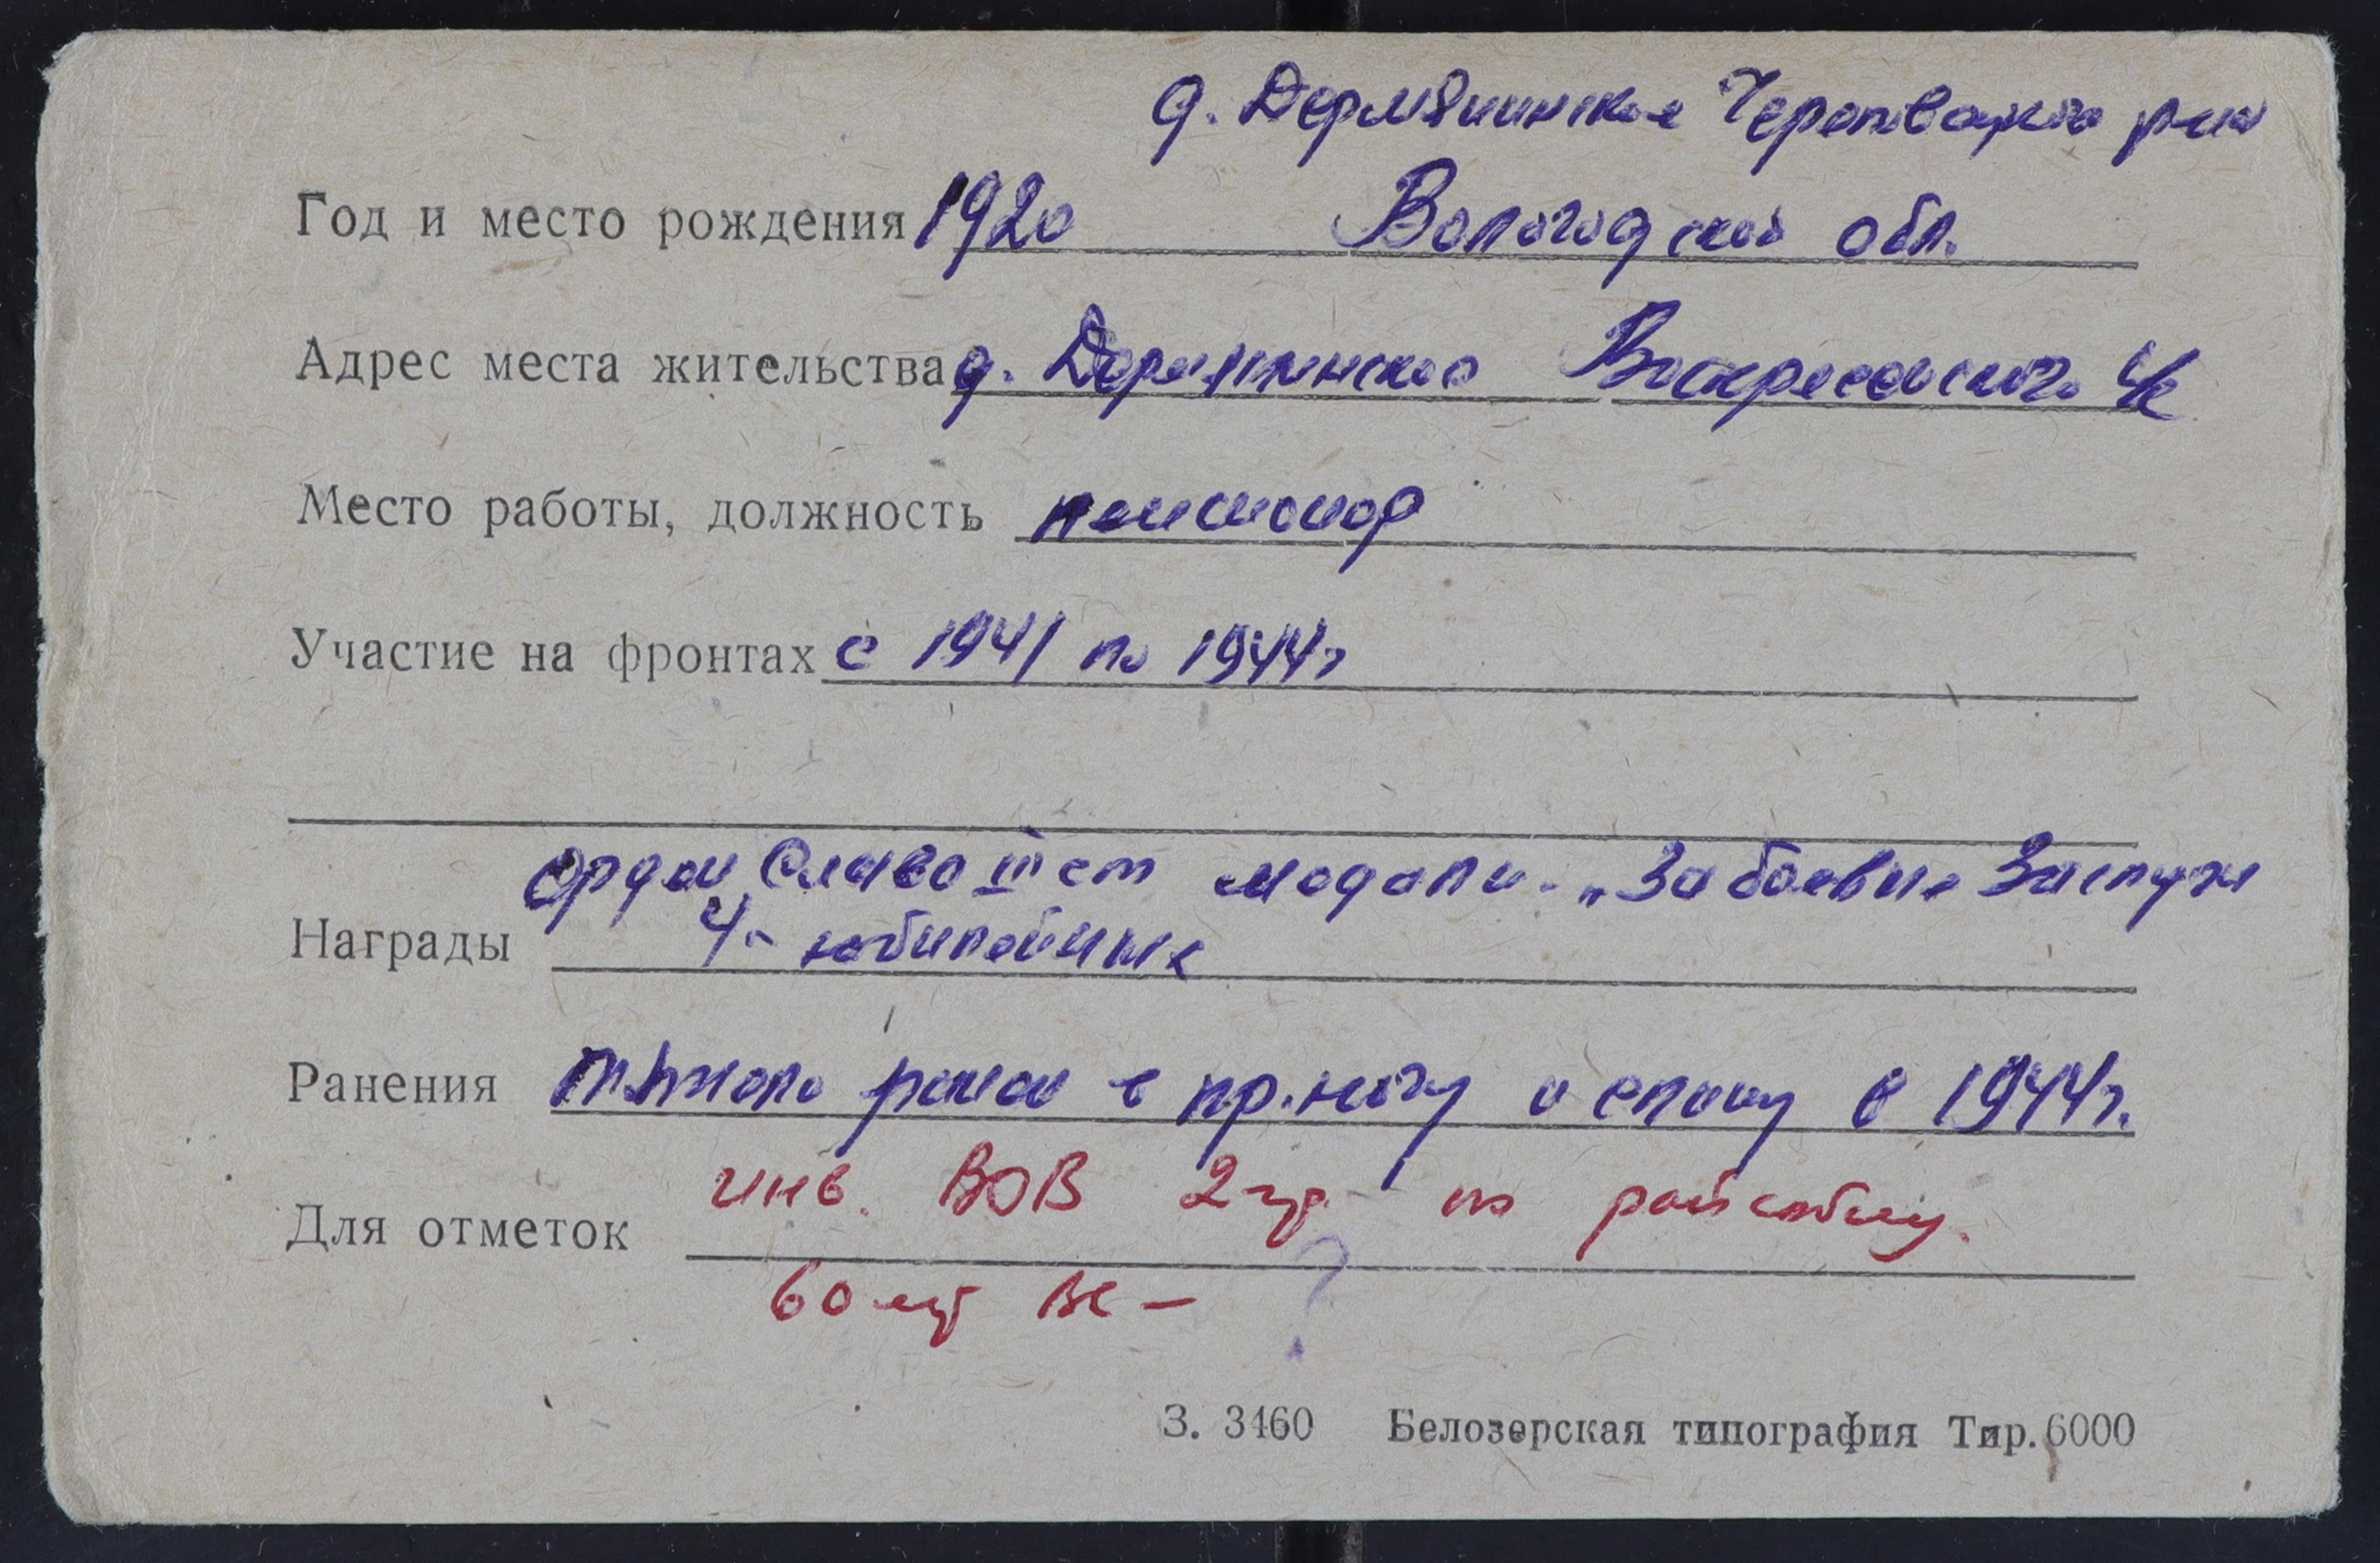 д. Дермянинское Череповецкого р-на
Год и место рождения 1920 Вологодской обл.
Адрес места жительства д. Дермянинское Воскресенского с/с
Место работы, должность пенсионер
Участие на фронтах с 1941 по 1944г
орден Славы III ст медали - „За боевые заслуги
Награды 4 - юбилейные
Ранения тяжело ранен в пр. ногу и спину в 1944г.
инв. ВОВ 2 гр. - по райсобесу.
Для отметок
60 лет ВС - ?
З. 3460 Белозерская типография Тир. 6000